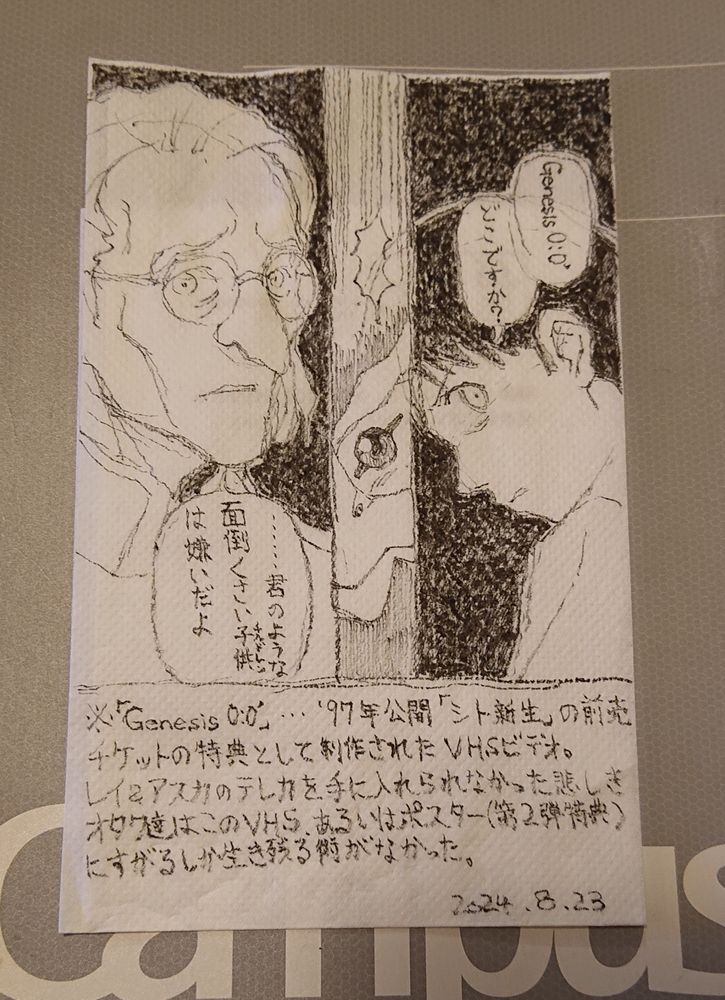 Genesis 0:0'
どこですか?
……君のような
面倒くさい子供
は嫌いだよ
※「Genesis 0:0'」…'97年公開「シト新生」の前売
チケットの特典として制作されたVHSビデオ。
レイ&アスカのテレカを手に入れられなかった悲しき
オタク達はこのVHS、あるいはポスター(第2弾特典)
にすがるしか生き残る術がなかった。
2024.8.23
Campus